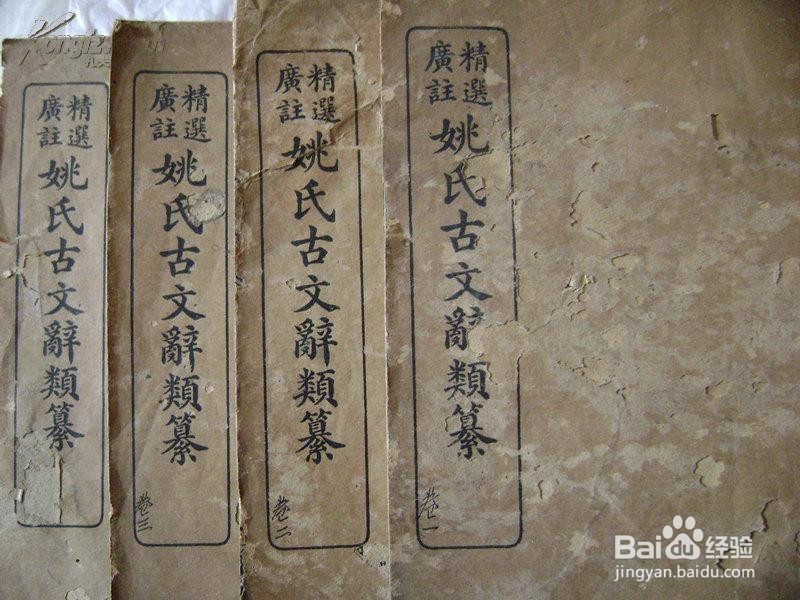 精選
廣註
姚氏古文辭類纂
卷一
精選
廣註
姚氏古文辭類纂
卷二
精選
廣註
姚氏古文辭類纂
卷三
精選
廣註
姚氏古文辭類纂
Bai百度经验
jingyan.baidu.com